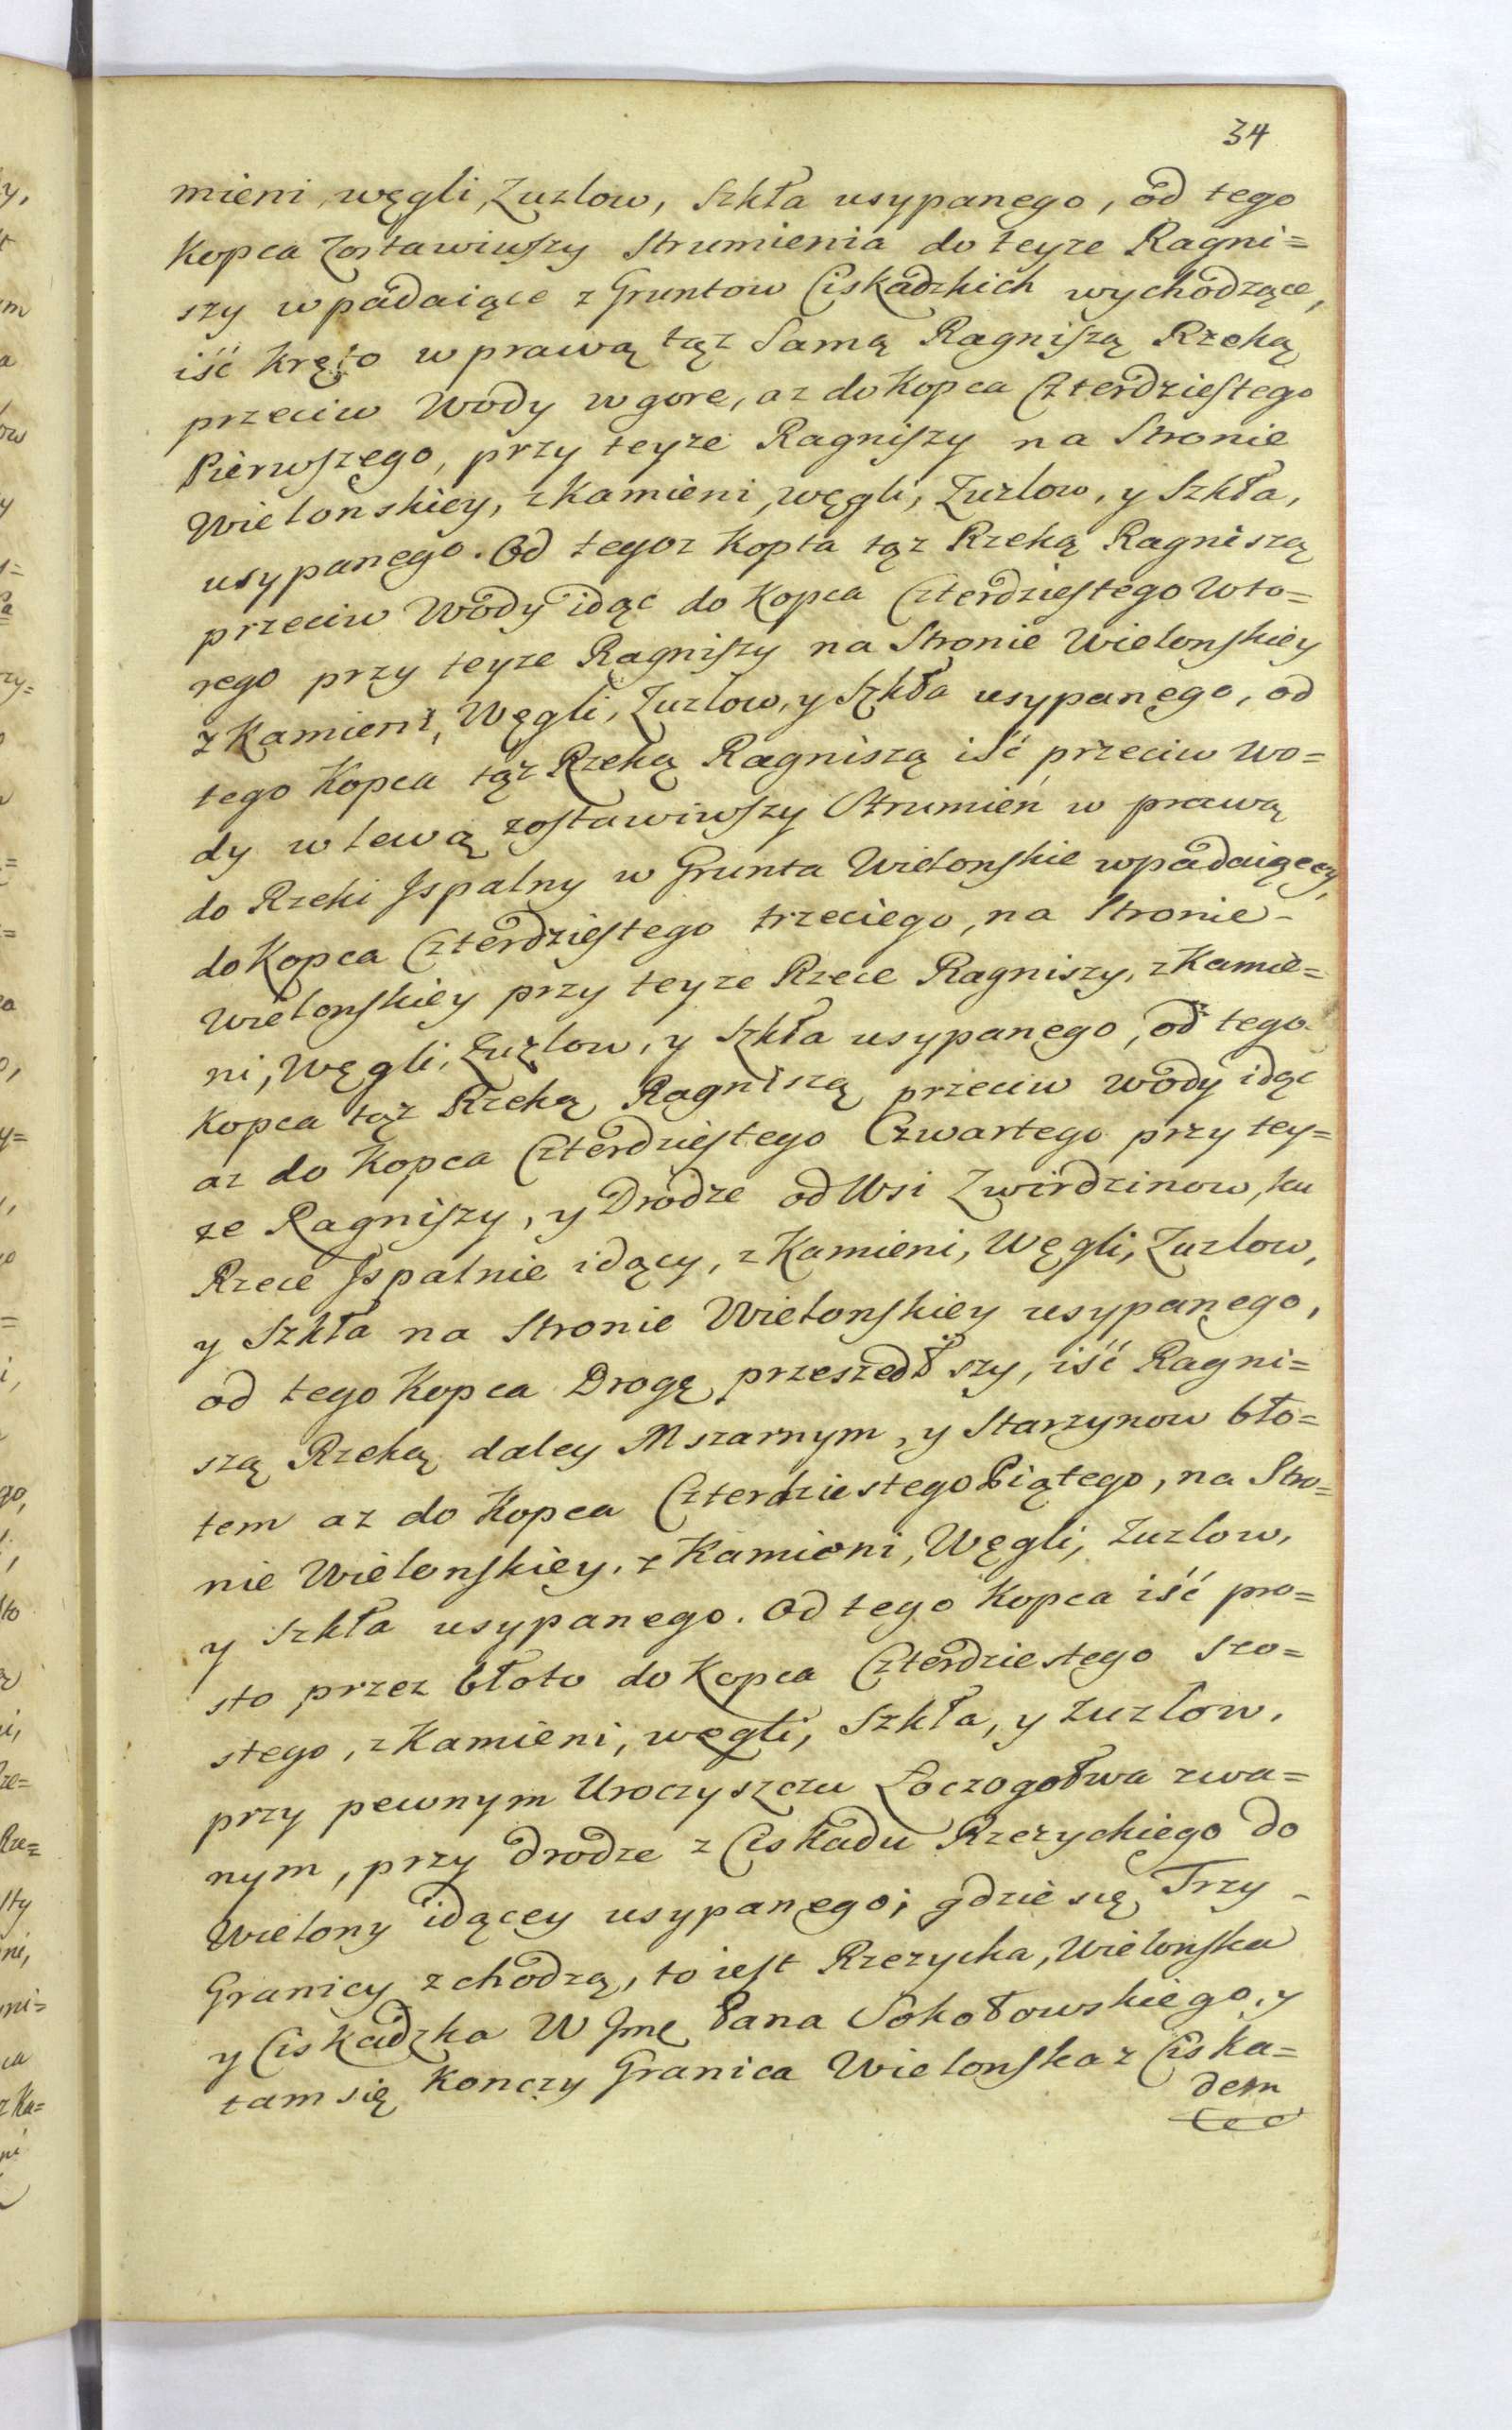 34
mieni, węgli, Zuzlow, Szkła usypanego, od tego
Kopca Zostawiwszy Strumienia do teyze Ragni=
szy wpadaiące z Gruntow Ciskadzkich wychodzące,
iść kręto w prawą tąz Samą Ragniszą Rzeką
przeciw Wody w gore, az do Kopca Czterdziestego
Pierwszego, przy teyze Ragniszy na Stronie
Wielonskiey, z Kamieni, węgli, Zuzlow, y Szkła,
usypanego. Od tegoz Kopca tąz Rzeką Ragniszą
przeciw Wody idąc do Kopca Czterdziestego Wto=
rego przy teyze Ragniszy na Stronie Wielonskiey
z Kamieni, Węgli, Zuzlow, y Szkła usypanego, od
tego Kopca tąz Rzeką Ragniszą iść przeciw wo=
dy w lewą zostawiwszy Strumień w prawą
do Rzeki Jspalny w Grunta Wielonskie wpadaiący,
do Kopca Czterdziestego trzeciego, na Stronie-
Wielonskiey przy teyze Rzece Ragniszy, z Kamie=
ni, Węgli, Zuzlow, y Szkła usypanego, od tego
Kopca tąz Rzeką Ragniszą przeciw wody idąc
az do Kopca Czterdziestego Czwartego przy tey=
ze Ragniszy, y Drodze od Wsi Zwirdzinow, ku
Rzece Jspalnie idący, z Kamieni, Węgli, Zuzlow,
y Szkła na Stronie Wielonskiey usypanego,
od tego Kopca Drogę przeszedłszy, iść Ragni=
szą Rzeką daley Mszarnym, y Starzynow bło=
tem az do Kopca Czterdziestego Piątego, na Stro=
nie Wielonskiey, z Kamieni, Węgli, Zuzlow,
y Szkła usypanego. Od tego Kopca iść pro=
sto przez błoto do Kopca Czterdziestego szo=
stego, z Kamieni, węgli, Szkła, y Zuzlow,
przy pewnym Uroczyszczu Łoczogołwa zwa=
nym, przy drodze z Ciskadu Rzezyckiego do
Wielony idącey usypanego; gdzie się Trzy-
Granicy zchodzą, to iest Rzezycka, Wielonska
y Ciskadzka W Jmę Pana Sokołowskiego, y
tam się Konczy Granica Wielonska z Ciska=
dem